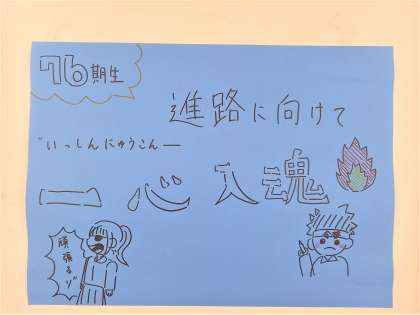 76期生
進路に向けて
"いっしんにゅうこんー
一心入魂
頑張るゾ